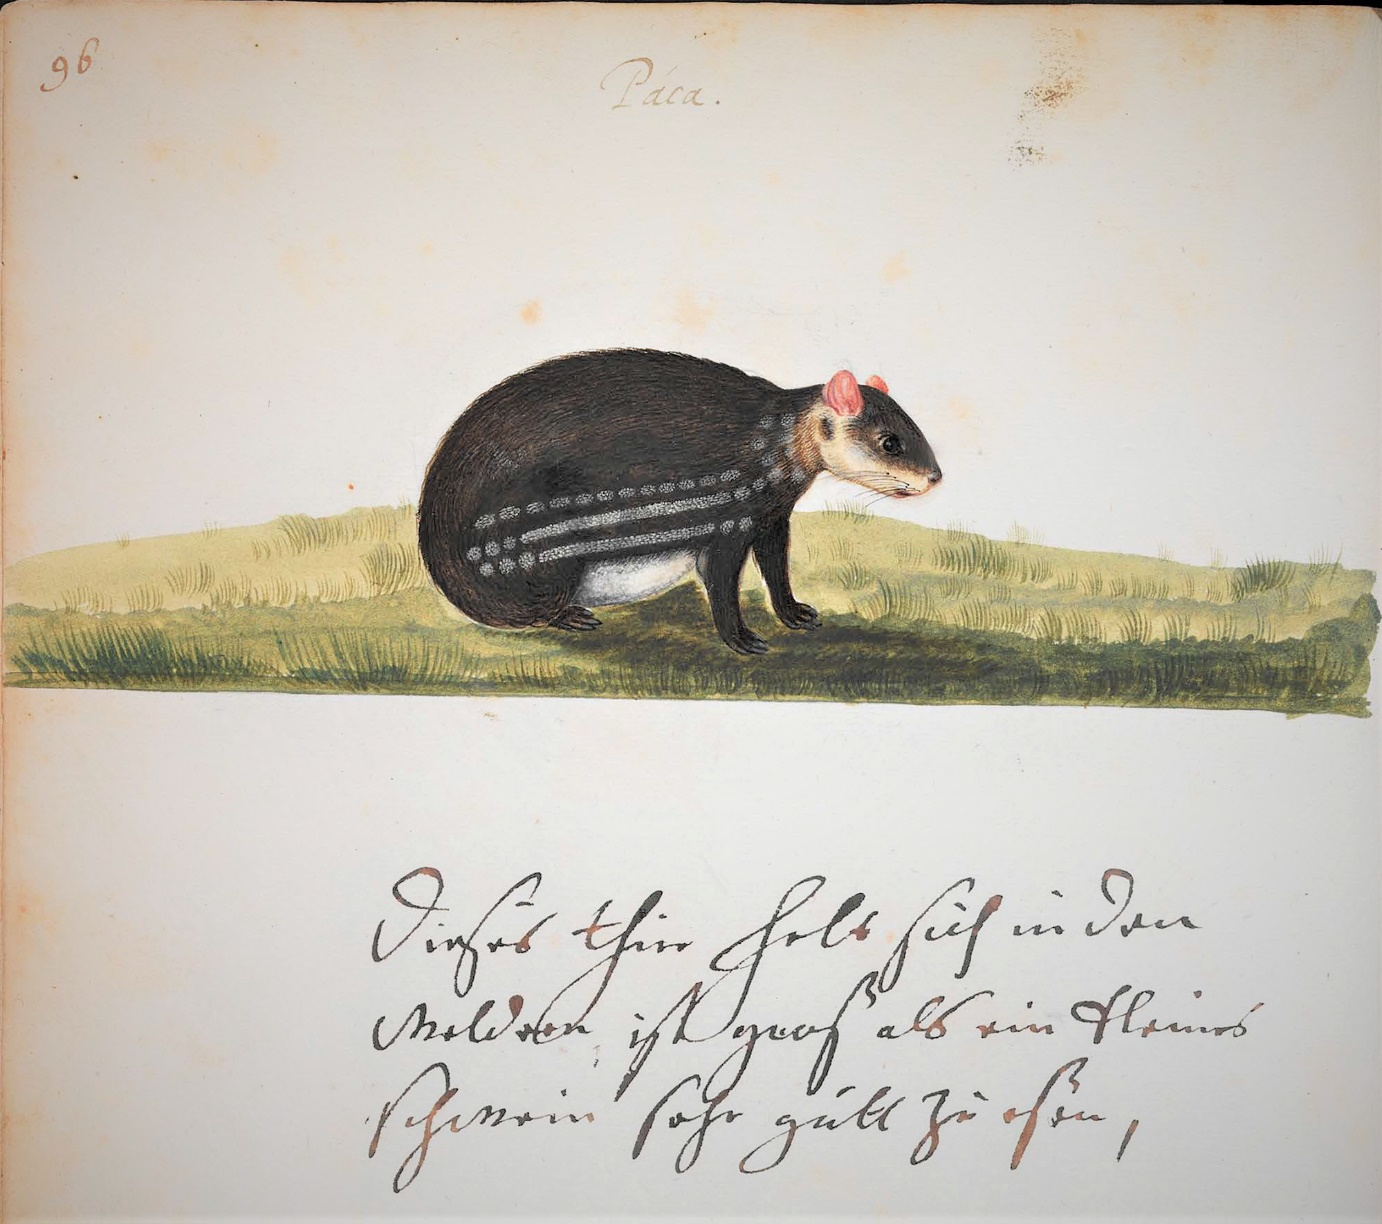 96
Páca.
Dieses thier helt sich in den
Weldern ist gros als ein kleines
schwein sehr gutt zu esen,